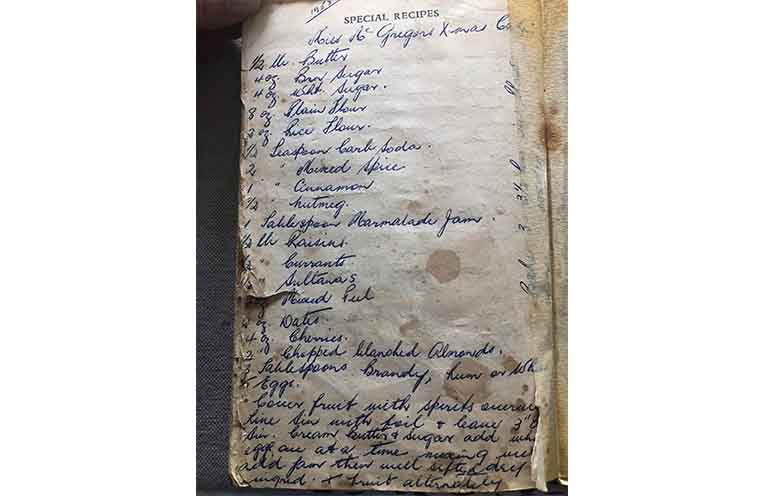 SPECIAL RECIPES
Miss McGregors X-mas
1/2 lb. Butter
4 oz. Brn Sugar
4 oz Wht. Sugar.
8 oz Plain Flour
2 oz. Rice Flour.
1/2 Teaspoon Carb Soda.
2 " Mixed Spice
1 " Cinnamon
1/2 " Nutmeg.
1 Tablespoon Marmalade Jam.
1/2 lb Raisins.
Currants.
Sultanas
Mixed Peel
oz. Dates.
4 oz. Cherries.
2 " Chopped blanched Almonds.
3 Tablespoons Brandy, Rum or
Eggs.
Cover fruit with spirits
line tin with foil & leave 3"
tin. Cream Butter & Sugar add
eggs one at a time mixing
add jam then well sifted dry
ingred. & fruit alternately